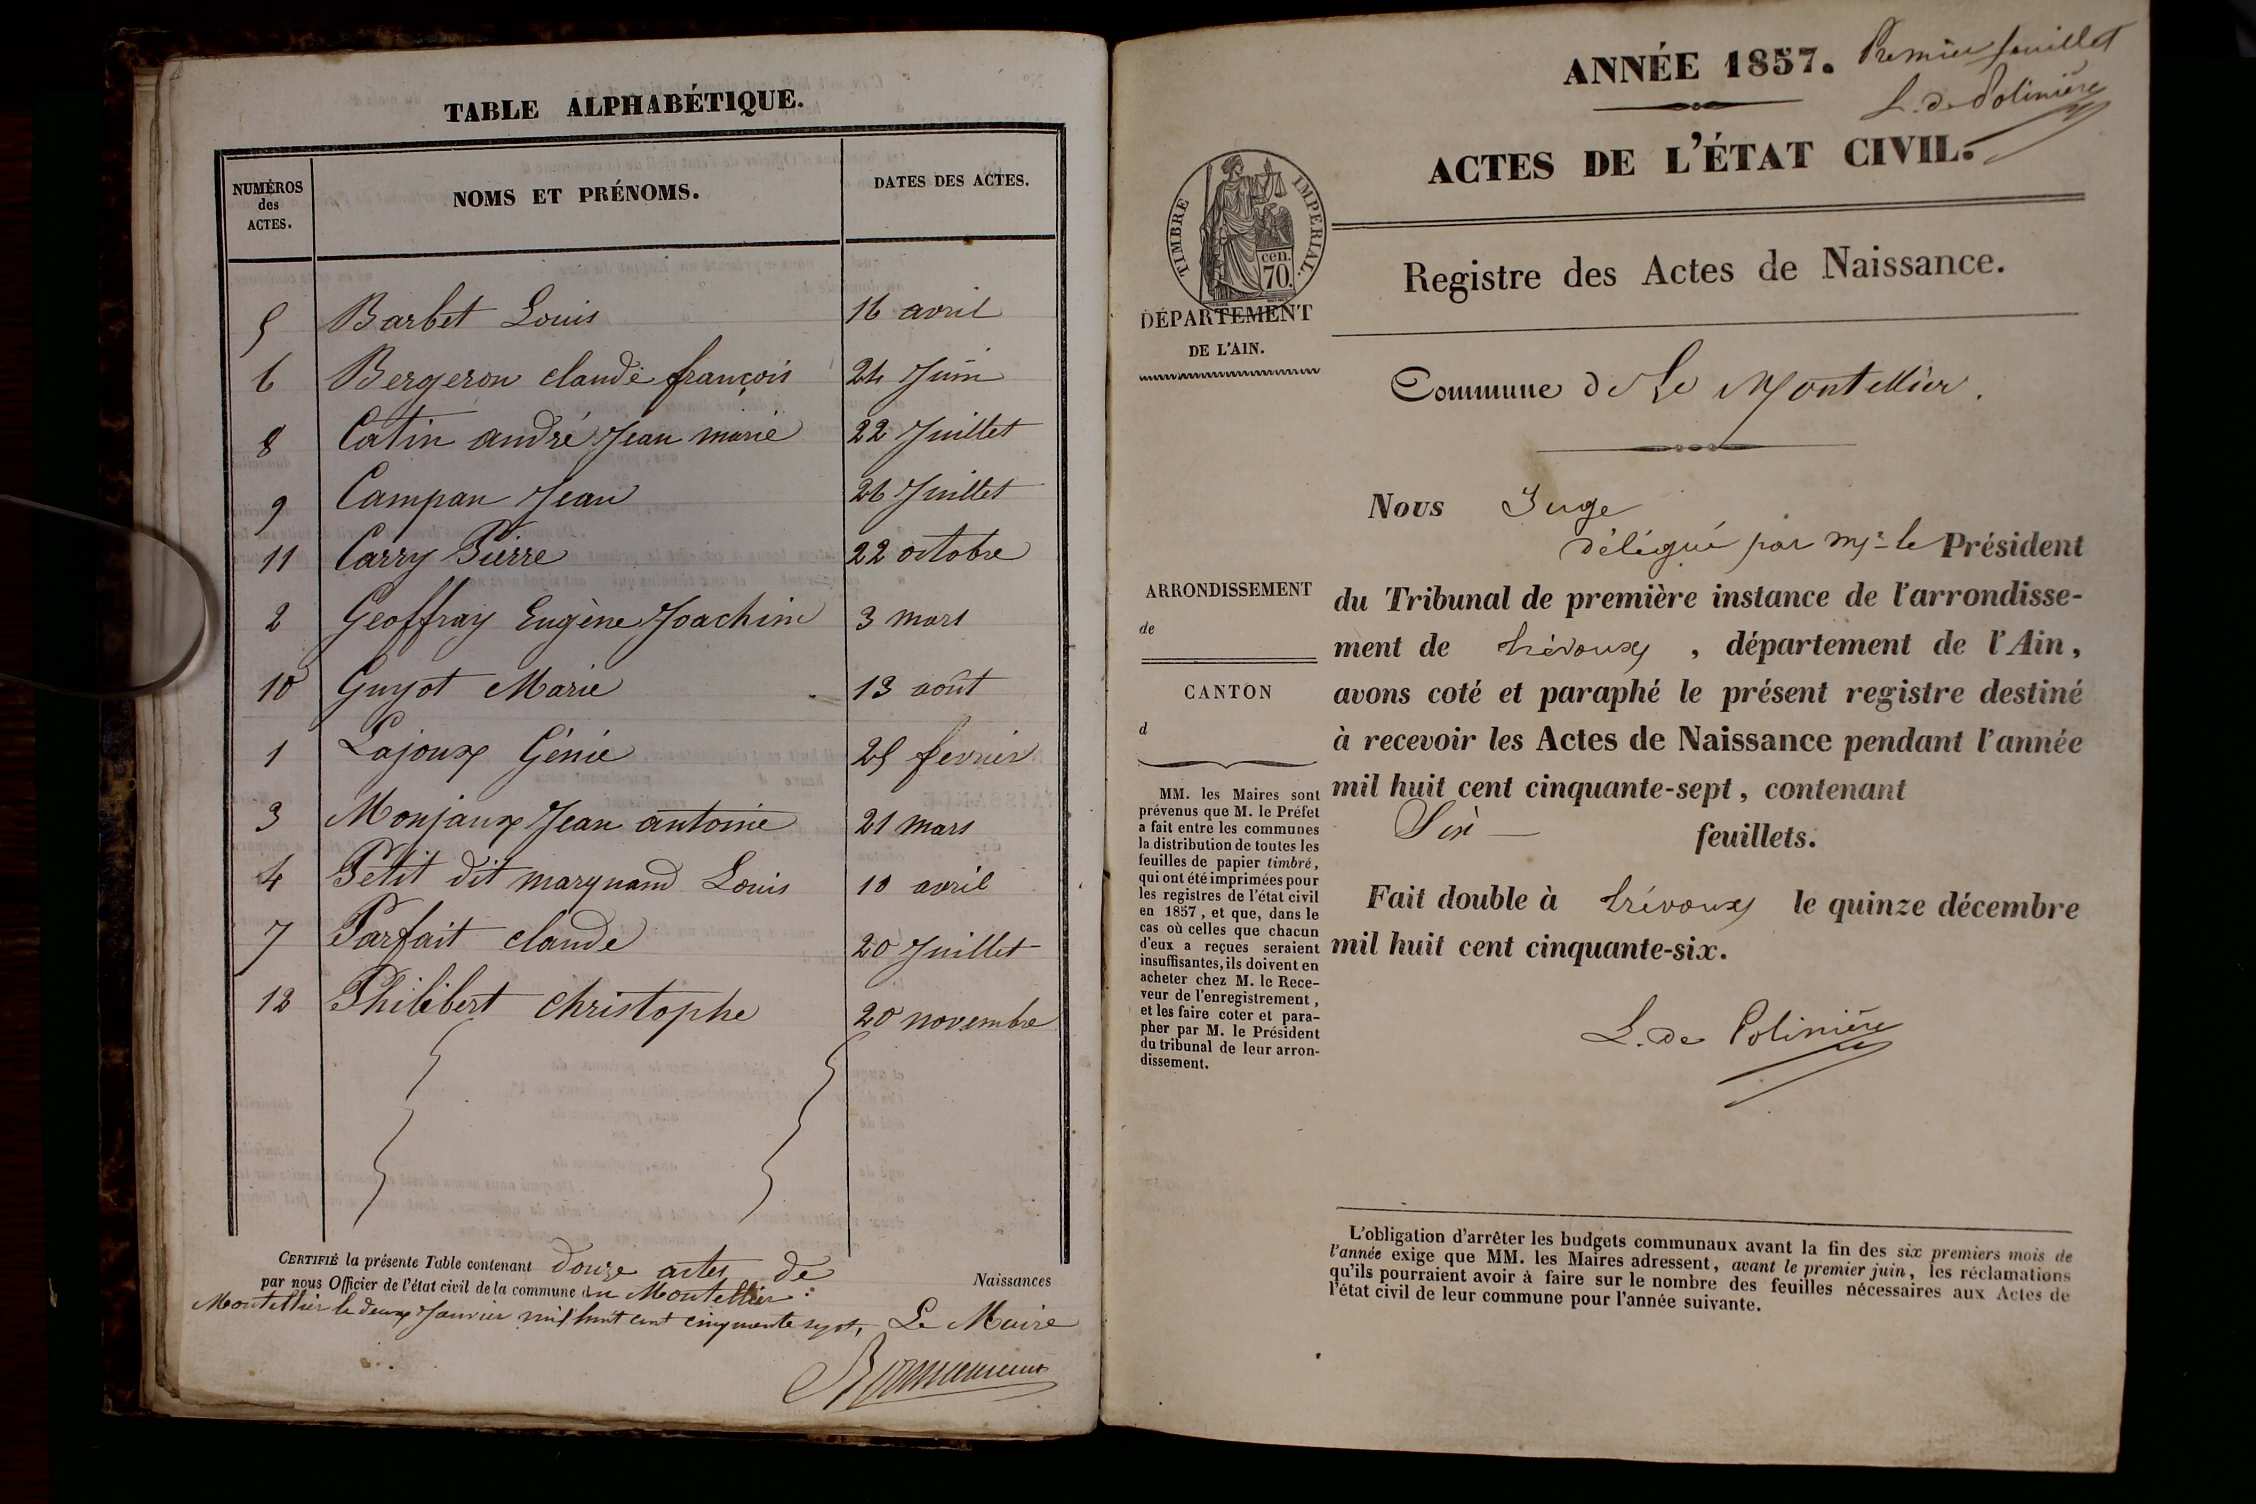 TABLE ALPHABÉTIQUE.
NUMÉROS des ACTES. NOMS ET PRÉNOMS. DATES DES ACTES.
5 Barbet Louis 16 avril
6 Bergeron claude françois 24 Juin
8 Catin andré Jean marie 22 Juillet
9 Campan Jean 26 Juillet
11 Carry Pierre 22 octobre
2 Geoffray Eugène Joachim 3 mars
10 Guyot Marie 13 août
1 Lajoux Génie 25 fevrier
3 Monjaux Jean antoine 21 mars
4 Petit dit marquand Louis 10 avril
7 Parfait claude 20 Juillet
12 Philibert christophe 20 novembre
CERTIFIÉ la présente Table contenant douze actes de Naissances
par nous Officier de l'état civil de la commune du Montellier:
Montellier le deux Janvier mil huit cent cinquante sept, Le Maire
ANNÉE 1857. Premier feuillet
L. de Polinière
ACTES DE L'ÉTAT CIVIL.
TIMBRE IMPERIAL.
cen.
70.
DÉPARTEMENT
DE L'AIN.
Registre des Actes de Naissance.
Commune de Le Montellier.
Nous Juge
délégué par Mr le Président
du Tribunal de première instance de l'arrondisse-
ment de trévoux, département de l'Ain,
avons coté et paraphé le présent registre destiné
à recevoir les Actes de Naissance pendant l'année
mil huit cent cinquante-sept, contenant
Six feuillets.
Fait double à trévoux le quinze décembre
mil huit cent cinquante-six.
L. de Polinière
ARRONDISSEMENT
de
CANTON
d
MM. les Maires sont
prévenus que M. le Préfet
a fait entre les communes
la distribution de toutes les
feuilles de papier timbré,
qui ont été imprimées pour
les registres de l'état civil
en 1857, et que, dans le
cas où celles que chacun
d'eux a reçues seraient
insuffisantes, ils doivent en
acheter chez M. le Rece-
veur de l'enregistrement,
et les faire coter et para-
pher par M. le Président
du tribunal de leur arron-
dissement.
L'obligation d'arrêter les budgets communaux avant la fin des six premiers mois de
l'année exige que MM. les Maires adressent, avant le premier juin, les réclamations
qu'ils pourraient avoir à faire sur le nombre des feuilles nécessaires aux Actes de
l'état civil de leur commune pour l'année suivante.